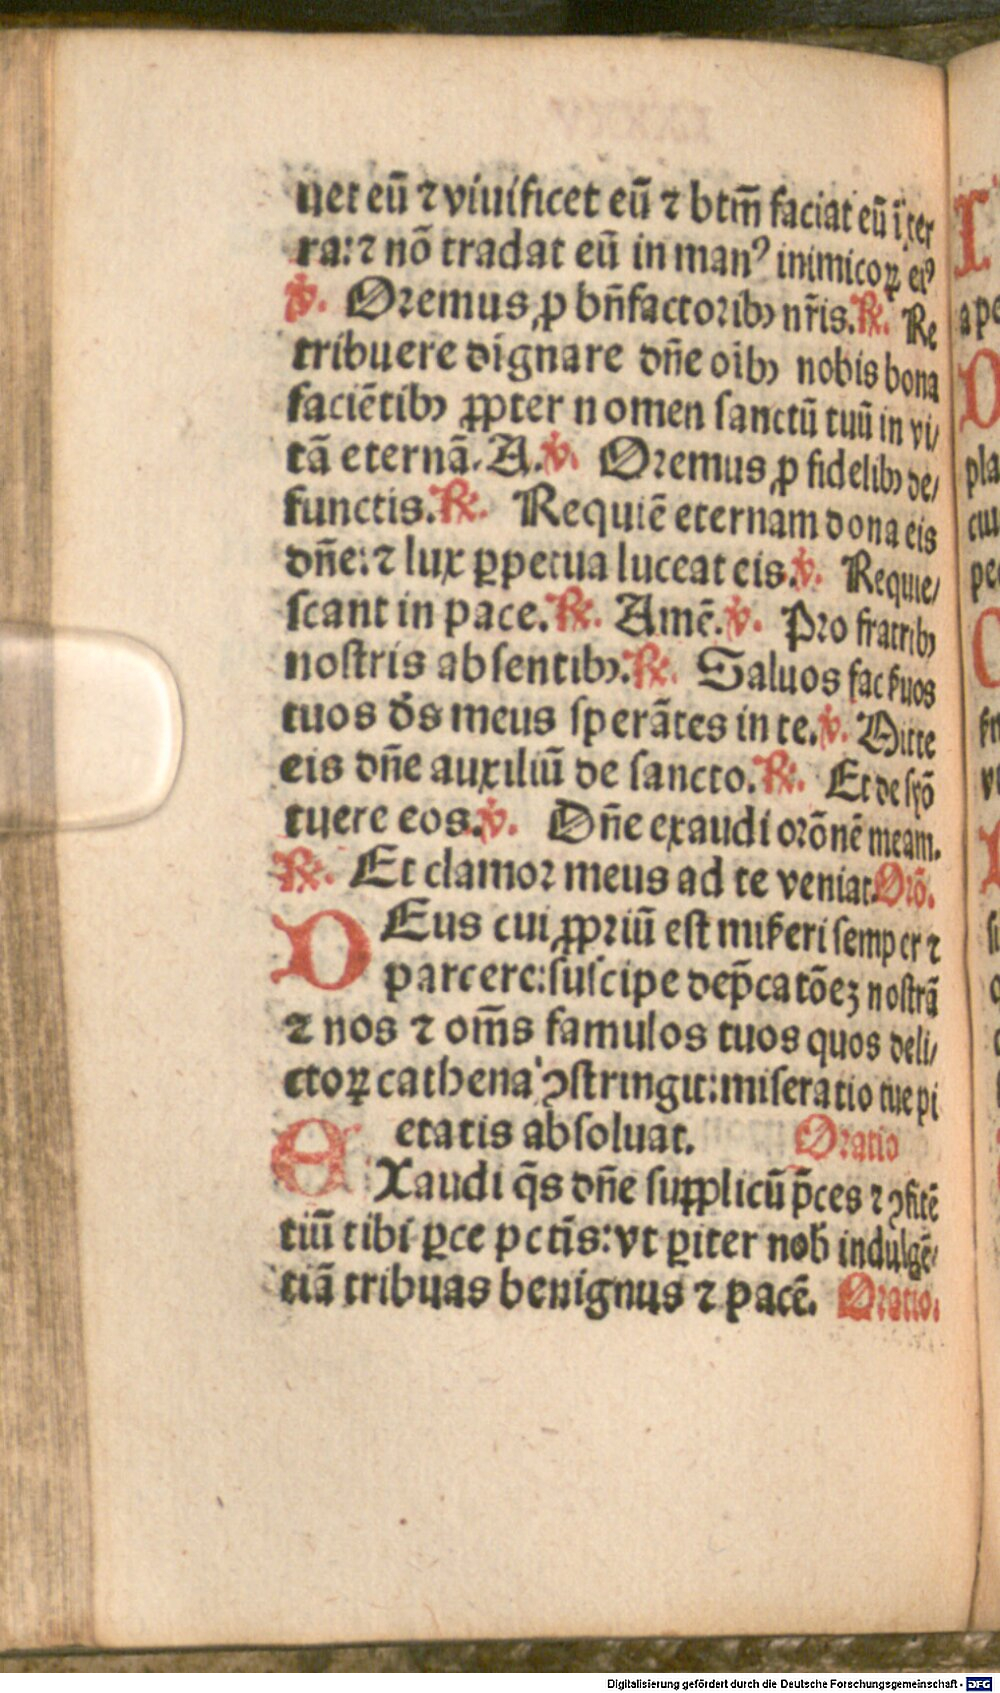 uet eū ⁊ viuificet eū ⁊ btm̄ faciat eū ī ter
ra: ⁊ nō tradat eū in manꝰ inimicoꝝ eiꝰ
℣. Oremus ꝓ bn̄factoribꝫ nr̄is. ℟. Re
tribuere dignare dn̄e oibꝫ nobis bona
faciētibꝫ ꝓpter nomen sanctū tuū in vi/
tā eternā. A. ℣. Oremus ꝓ fidelibꝫ de/
functis. ℟. Requiē eternam dona eis
dn̄e: ⁊ lux ꝑpetua luceat eis. ℣. Requie/
scant in pace. ℟. Amē. ℣. Pro fratribꝫ
nostris absentibꝫ. ℟. Saluos fac ẜuos
tuos de̅s meus sperātes in te. ℣. Mitte
eis dn̄e auxiliū de sancto. ℟. Et de syō
tuere eos. ℣. Dn̄e exaudi orōnē meam.
℟. Et clamor meus ad te veniat. Orō.
DEus cui ꝓpriū est miẜeri semper ⁊
parcere: suscipe dep̄catōeꝫ nostrā
⁊ nos ⁊ om̄s famulos tuos quos deli/
ctoꝝ cathena ꝯstringit: miseratio tue pi
etatis absoluat. Oratio
EXaudi q̄s dn̄e supplicū p̄ces ⁊ ꝯfitē
tiū tibi ꝑce pctīs: vt ꝑiter nob̄ indulgē/
tiā tribuas benignus ⁊ pacē. Oratio.
Digitalisierung gefördert durch die Deutsche Forschungsgemeinschaft - DFG